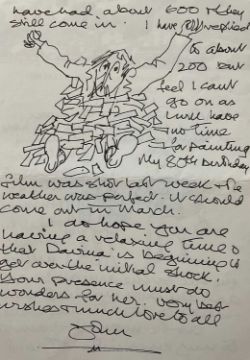 have had about 600 & they
still come in. I have replied
to about
200 but
feel I can't
go on as
I will have
no time
for painting
My 80th birthday
film was shot last week & the
weather was perfect. It should
come out in March.
I do hope you are
having a relaxing time &
that Davina is beginning to
get over the initial shock.
Your presence must do
wonders for her. Very best
wishes & much love to all
John